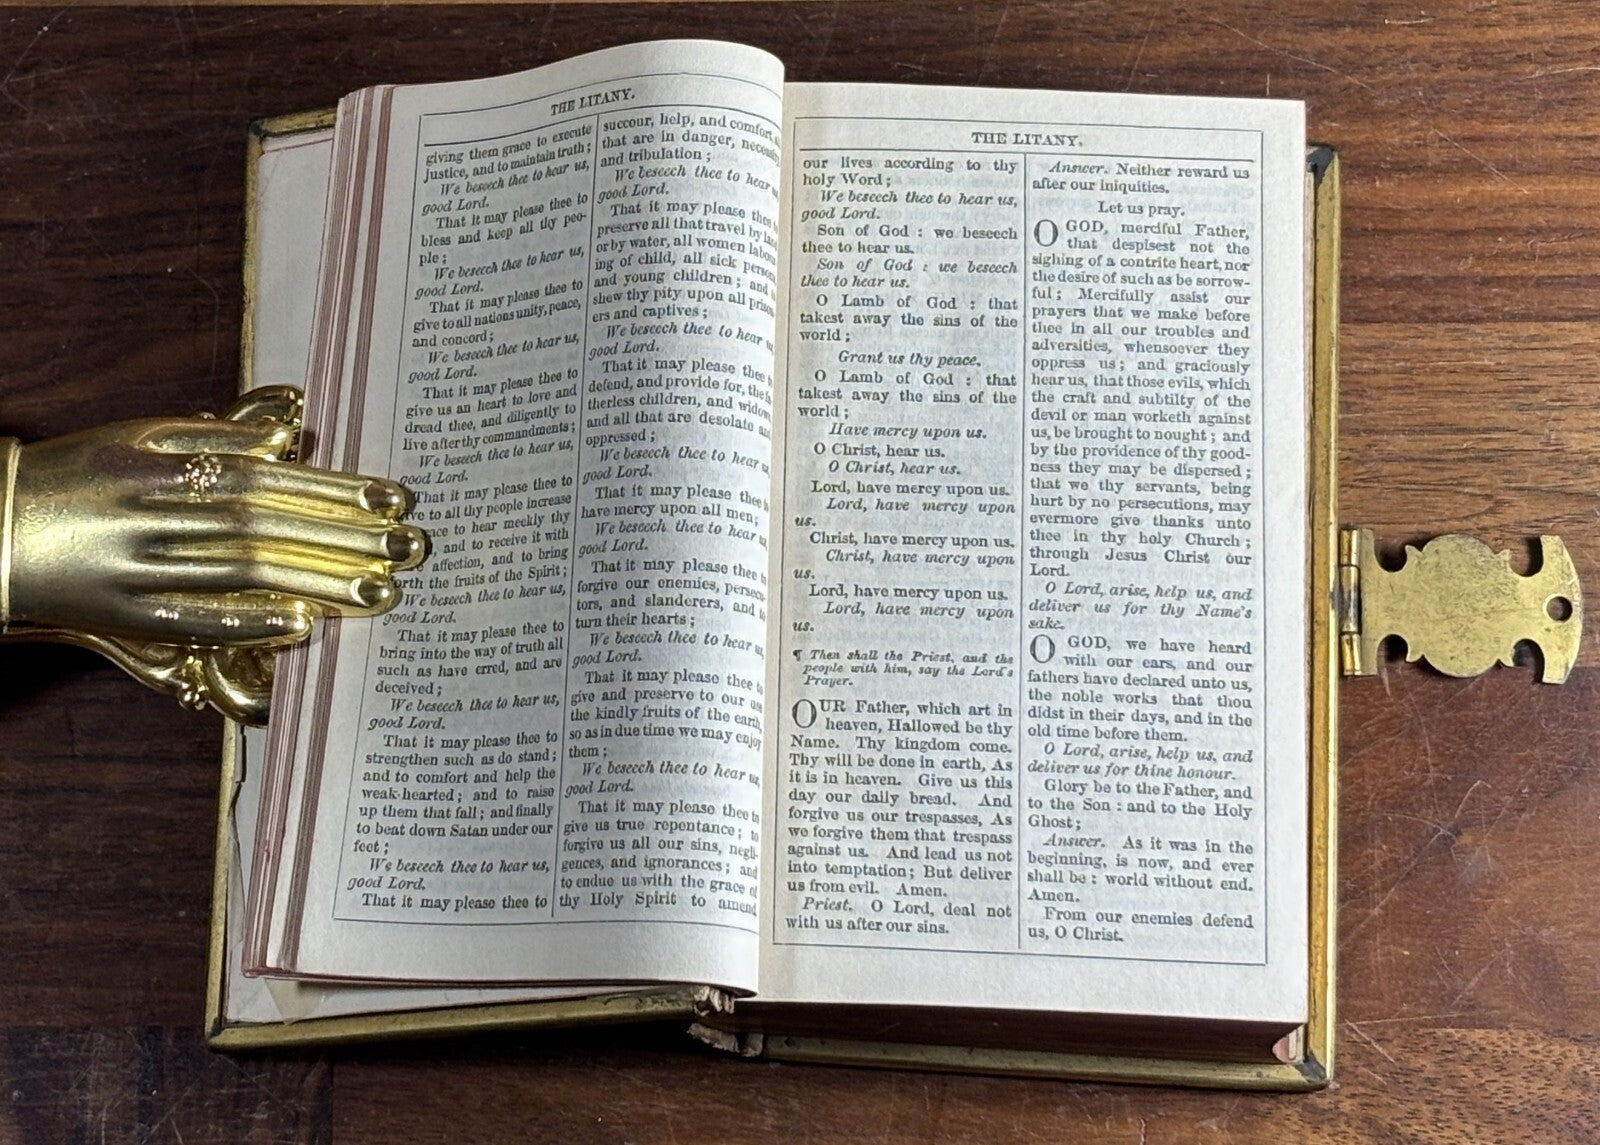 THE LITANY.
giving them grace to execute
justice, and to maintain truth;
We beseech thee to hear us,
good Lord.
That it may please thee to
bless and keep all thy peo-
ple;
We beseech thee to hear us,
good Lord.
That it may please thee to
give to all nations unity, peace,
and concord;
We beseech thee to hear us,
good Lord.
That it may please thee to
give us an heart to love and
dread thee, and diligently to
live after thy commandments;
We beseech thee to hear us,
good Lord.
That it may please thee to
to all thy people increase
to hear meekly thy
and to receive it with
affection, and to bring
forth the fruits of the Spirit;
We beseech thee to hear us,
good Lord.
That it may please thee to
bring into the way of truth all
such as have erred, and are
deceived;
We beseech thee to hear us,
good Lord.
That it may please thee to
strengthen such as do stand;
and to comfort and help the
weak-hearted; and to raise
up them that fall; and finally
to beat down Satan under our
feet;
We beseech thee to hear us,
good Lord.
That it may please thee to
succour, help, and comfort,
that are in danger, necessity
and tribulation;
We beseech thee to hear us,
good Lord.
That it may please thee to
preserve all that travel by land
or by water, all women labour-
ing of child, all sick persons
and young children; and to
shew thy pity upon all prison-
ers and captives;
We beseech thee to hear us,
good Lord.
That it may please thee to
defend, and provide for, the fa-
therless children, and widows
and all that are desolate and
oppressed;
We beseech thee to hear us,
good Lord.
That it may please thee to
have mercy upon all men;
We beseech thee to hear us,
good Lord.
That it may please thee to
forgive our enemies, persecu-
tors, and slanderers, and to
turn their hearts;
We beseech thee to hear us,
good Lord.
That it may please thee to
give and preserve to our use
the kindly fruits of the earth,
so as in due time we may enjoy
them;
We beseech thee to hear us,
good Lord.
That it may please thee to
give us true repentance; to
forgive us all our sins, negli-
gences, and ignorances; and
to endue us with the grace of
thy Holy Spirit to amend
THE LITANY.
our lives according to thy
holy Word;
We beseech thee to hear us,
good Lord.
Son of God : we beseech
thee to hear us.
Son of God : we beseech
thee to hear us.
O Lamb of God : that
takest away the sins of the
world;
Grant us thy peace.
O Lamb of God : that
takest away the sins of the
world;
Have mercy upon us.
O Christ, hear us.
O Christ, hear us.
Lord, have mercy upon us.
Lord, have mercy upon
us.
Christ, have mercy upon us.
Christ, have mercy upon
us.
Lord, have mercy upon us.
Lord, have mercy upon
us.
¶ Then shall the Priest, and the
people with him, say the Lord's
Prayer.
OUR Father, which art in
heaven, Hallowed be thy
Name. Thy kingdom come.
Thy will be done in earth, As
it is in heaven. Give us this
day our daily bread. And
forgive us our trespasses, As
we forgive them that trespass
against us. And lead us not
into temptation; But deliver
us from evil. Amen.
Priest. O Lord, deal not
with us after our sins.
Answer. Neither reward us
after our iniquities.
Let us pray.
O GOD, merciful Father,
that despisest not the
sighing of a contrite heart, nor
the desire of such as be sorrow-
ful; Mercifully assist our
prayers that we make before
thee in all our troubles and
adversities, whensoever they
oppress us; and graciously
hear us, that those evils, which
the craft and subtilty of the
devil or man worketh against
us, be brought to nought; and
by the providence of thy good-
ness they may be dispersed;
that we thy servants, being
hurt by no persecutions, may
evermore give thanks unto
thee in thy holy Church;
through Jesus Christ our
Lord.
O Lord, arise, help us, and
deliver us for thy Name's
sake.
O GOD, we have heard
with our ears, and our
fathers have declared unto us,
the noble works that thou
didst in their days, and in the
old time before them.
O Lord, arise, help us, and
deliver us for thine honour.
Glory be to the Father, and
to the Son : and to the Holy
Ghost;
Answer. As it was in the
beginning, is now, and ever
shall be : world without end.
Amen.
From our enemies defend
us, O Christ.